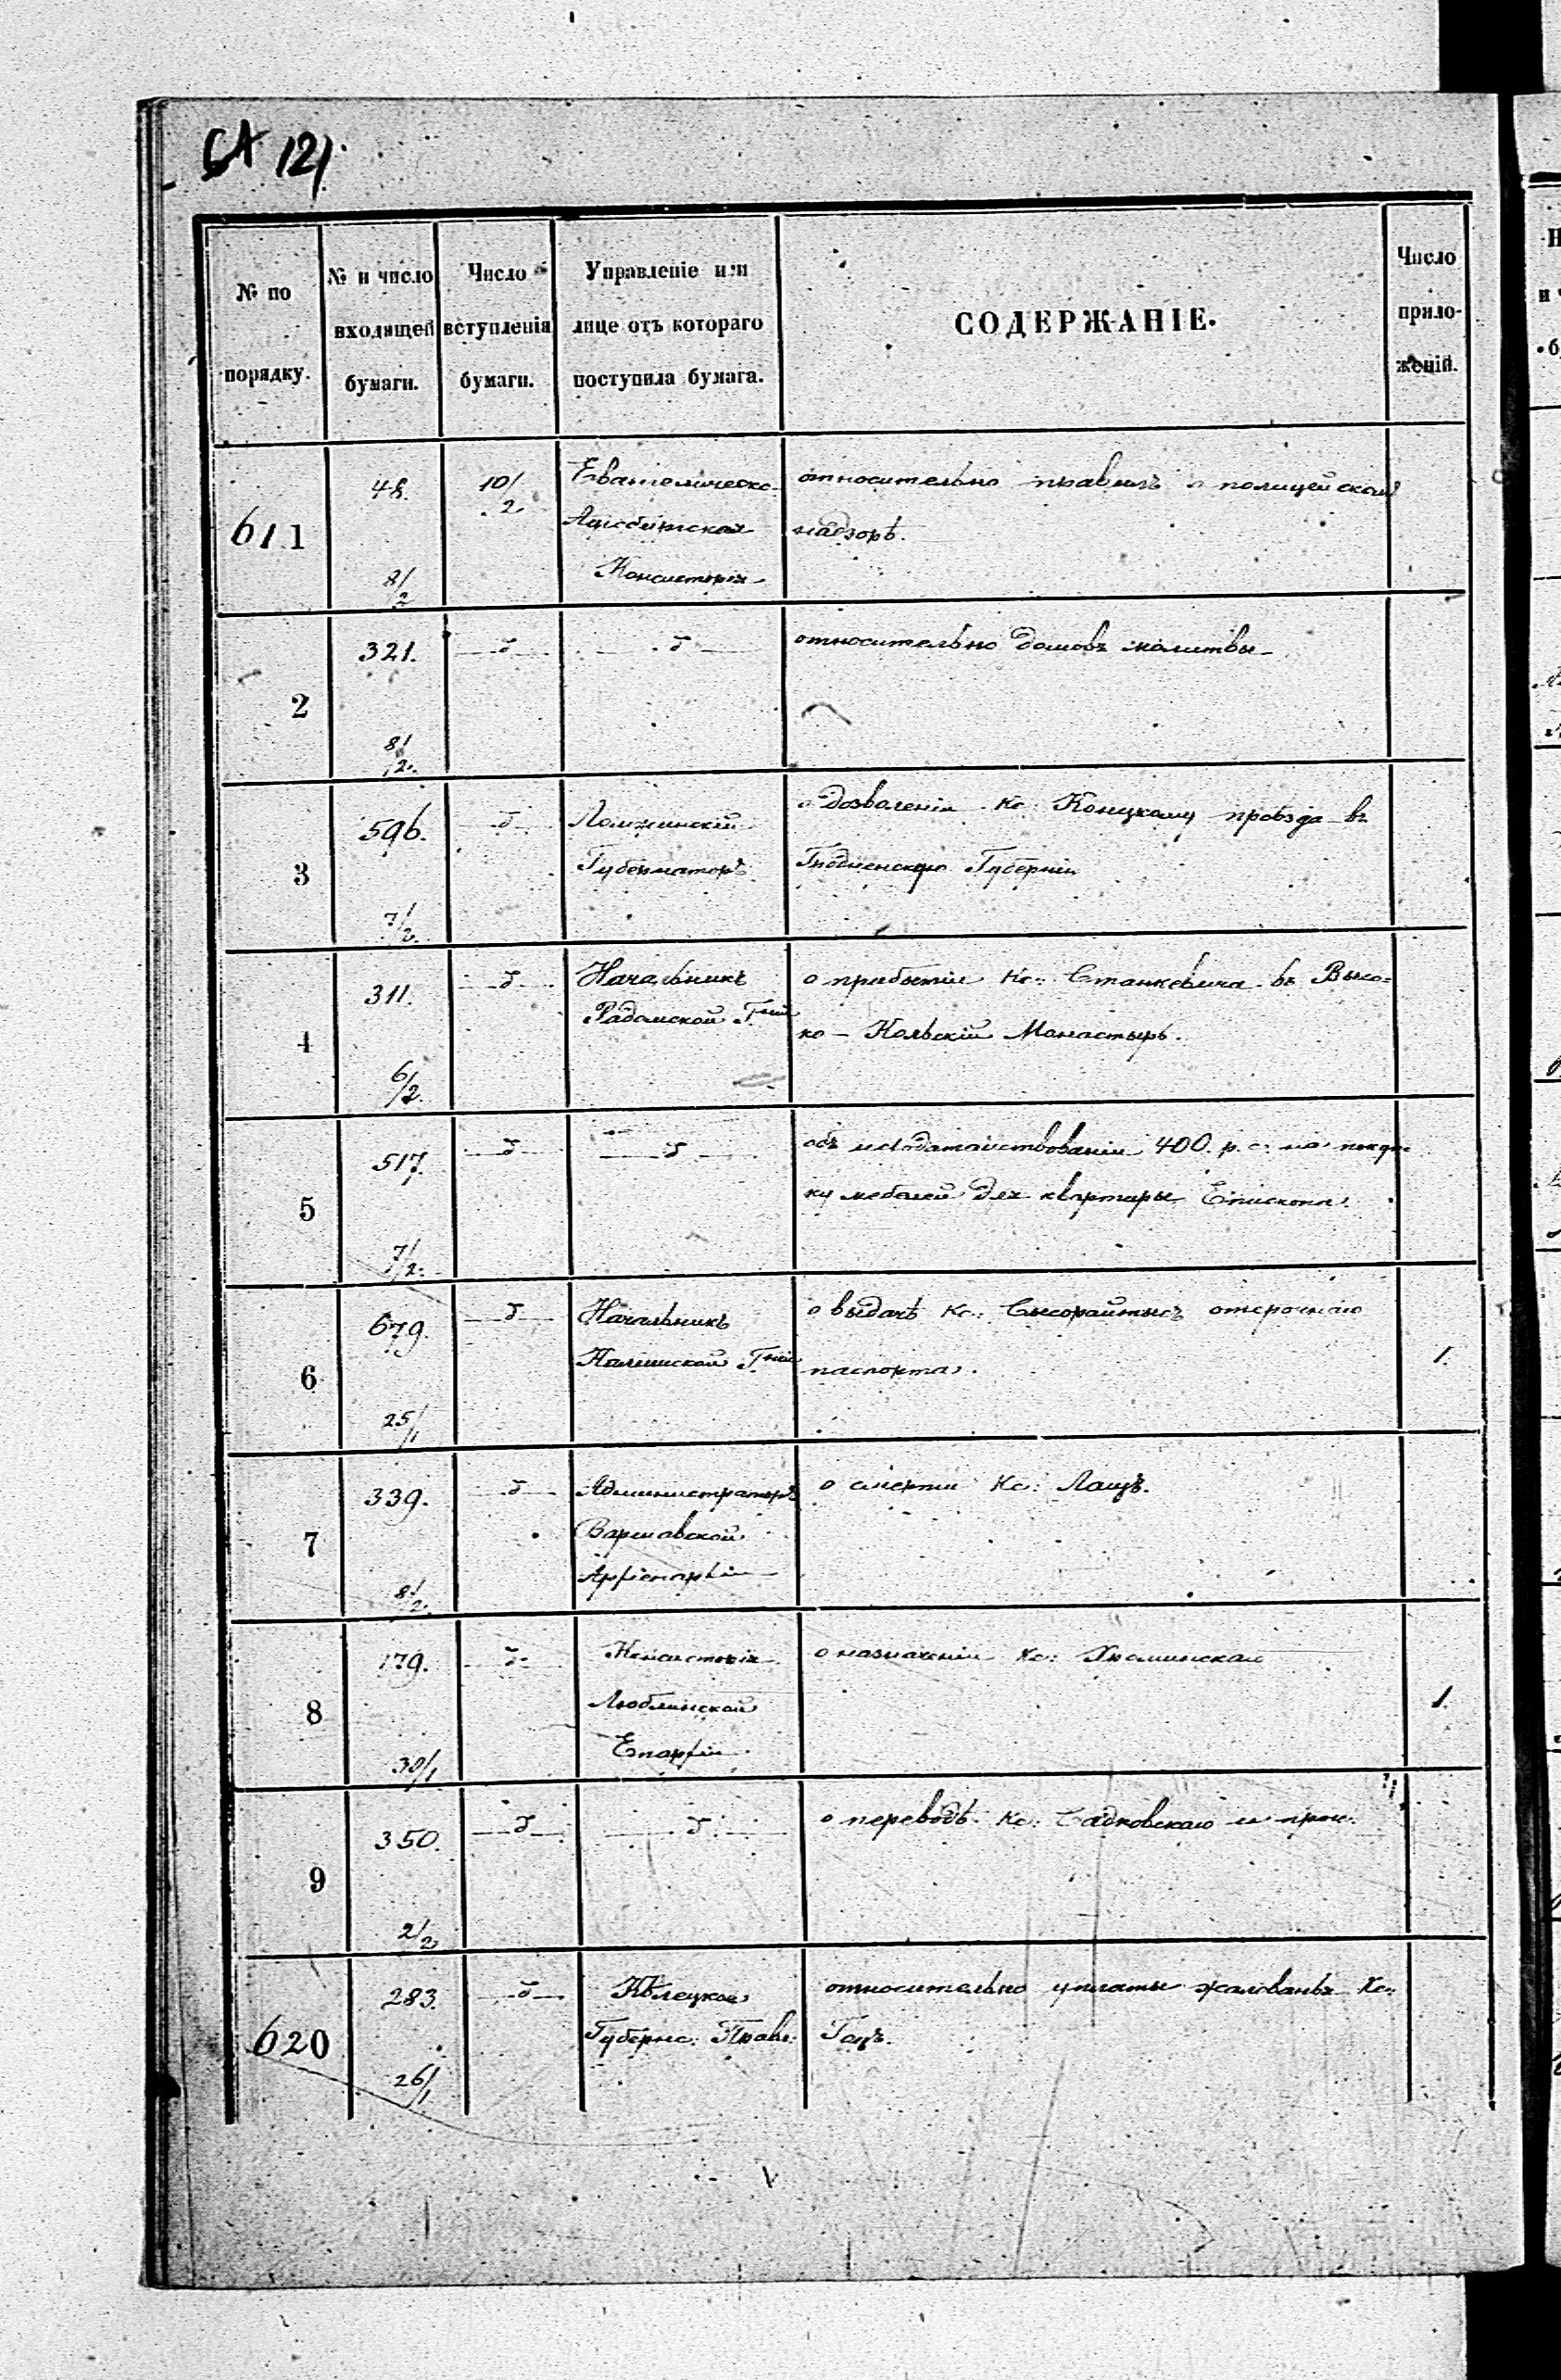 121.
№ по порядку.
№ и число входящей бумаги.
Число вступленія бумаги.
Управленіе или лице отъ котораго поступила бумага.
СОДЕРЖАНІЕ.
Число приложеній.
611
48.
8/2
10/2
Евангелическо-
Аугсбургская
Консисторія
относительно правилъ о полицейскомъ
надзорѣ.
2
321.
8/2.
относительно домовъ молитвы
3
596.
7/2.
Ломжинскій
Губернаторъ
о дозволеніи Кс: Коницкому проѣзда въ
Гродненскую Губернію
4
311.
6/2.
Начальникъ
Радомской Гніи
о прибытіи Кс: Станкевича въ Высо=
ко - Кольскій Монастырь.
5
517.
7/2.
объ исходатайствованіи 400 р. с: на покуп
ку мебелей для квартиры Епископа.
6
679.
25/1
Начальникъ
Калишской Гніи
о выдачѣ Кс: отсрочнаго
паспорта.
1.
7
339.
8/2.
Администраторъ
Варшавской
Архіепархіи
о смерти Кс: Лащъ.
8
179.
30/1
Консисторія
Люблинской
Епархіи
о назначеніи Кс:
1.
9
350.
2/2
о переводѣ Кс: Садковскаго и проч:
620
283.
26/1
Кѣлецкое
Губернс: Правл:
относительно уплаты жалованья Кс:
Гацъ.